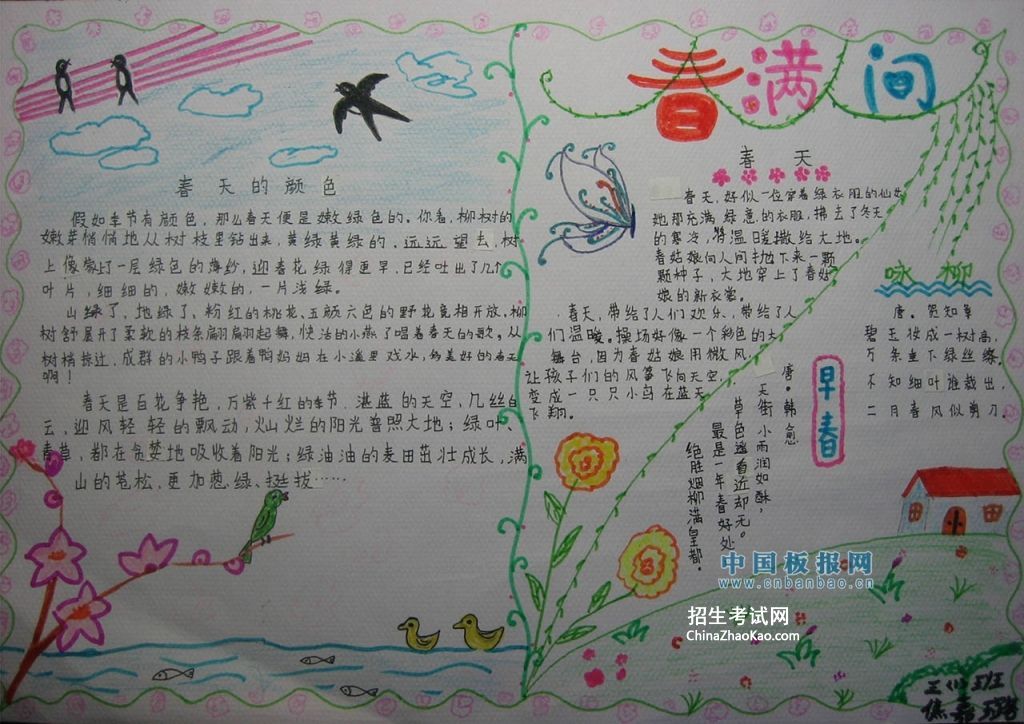 春满间
春天的颜色
假如季节有颜色，那么春天便是嫩绿色的。你看，柳树的
嫩芽悄悄地从树枝里钻出来，黄绿黄绿的，远远望去，树
上像蒙上了一层绿色的薄纱，迎春花绿得更早，已经吐出了几个
叶片，细细的，嫩嫩的，一片浅绿。
山绿了，地绿了，粉红的桃花、五颜六色的野花竞相开放，柳
树舒展开了柔软的枝条翩翩起舞，快活的小燕子唱着春天的歌。从
树梢掠过，成群的小鸭子跟着鸭妈妈在小溪里戏水，多美好的春天
啊！
春天是百花争艳，万紫千红的季节，湛蓝的天空，几丝白
云，迎风轻轻的飘动，灿烂的阳光普照大地；绿叶、
青草，都在贪婪地吸收着阳光；绿油油的麦田茁壮成长，满
山的苍松，更加葱绿、挺拔……
春天
春天，好似一位穿着绿衣服的仙女
她那充满绿意的衣服，拂去了冬天
的寒冷，将温暖撒给大地。
春姑娘向人间抛下来一颗
颗种子，大地穿上了春姑
娘的新衣裳。
春天，带给了人们欢乐，带给了人
们温暖。操场好像一个彩色的大
舞台，因为春姑娘用微风
让孩子们的风筝飞向天空，
变成一只只小鸟在蓝天
飞翔。
咏柳
唐。贺知章
碧玉妆成一树高，
万条垂下绿丝绦。
不知细叶谁裁出，
二月春风似剪刀。
早春
唐·韩愈
天街小雨润如酥，
草色遥看近却无。
最是一年春好处
绝胜烟柳满皇都。
中国板报网
www.cnbanbao.cn
招生考试网
ChinaZhaoKao.com